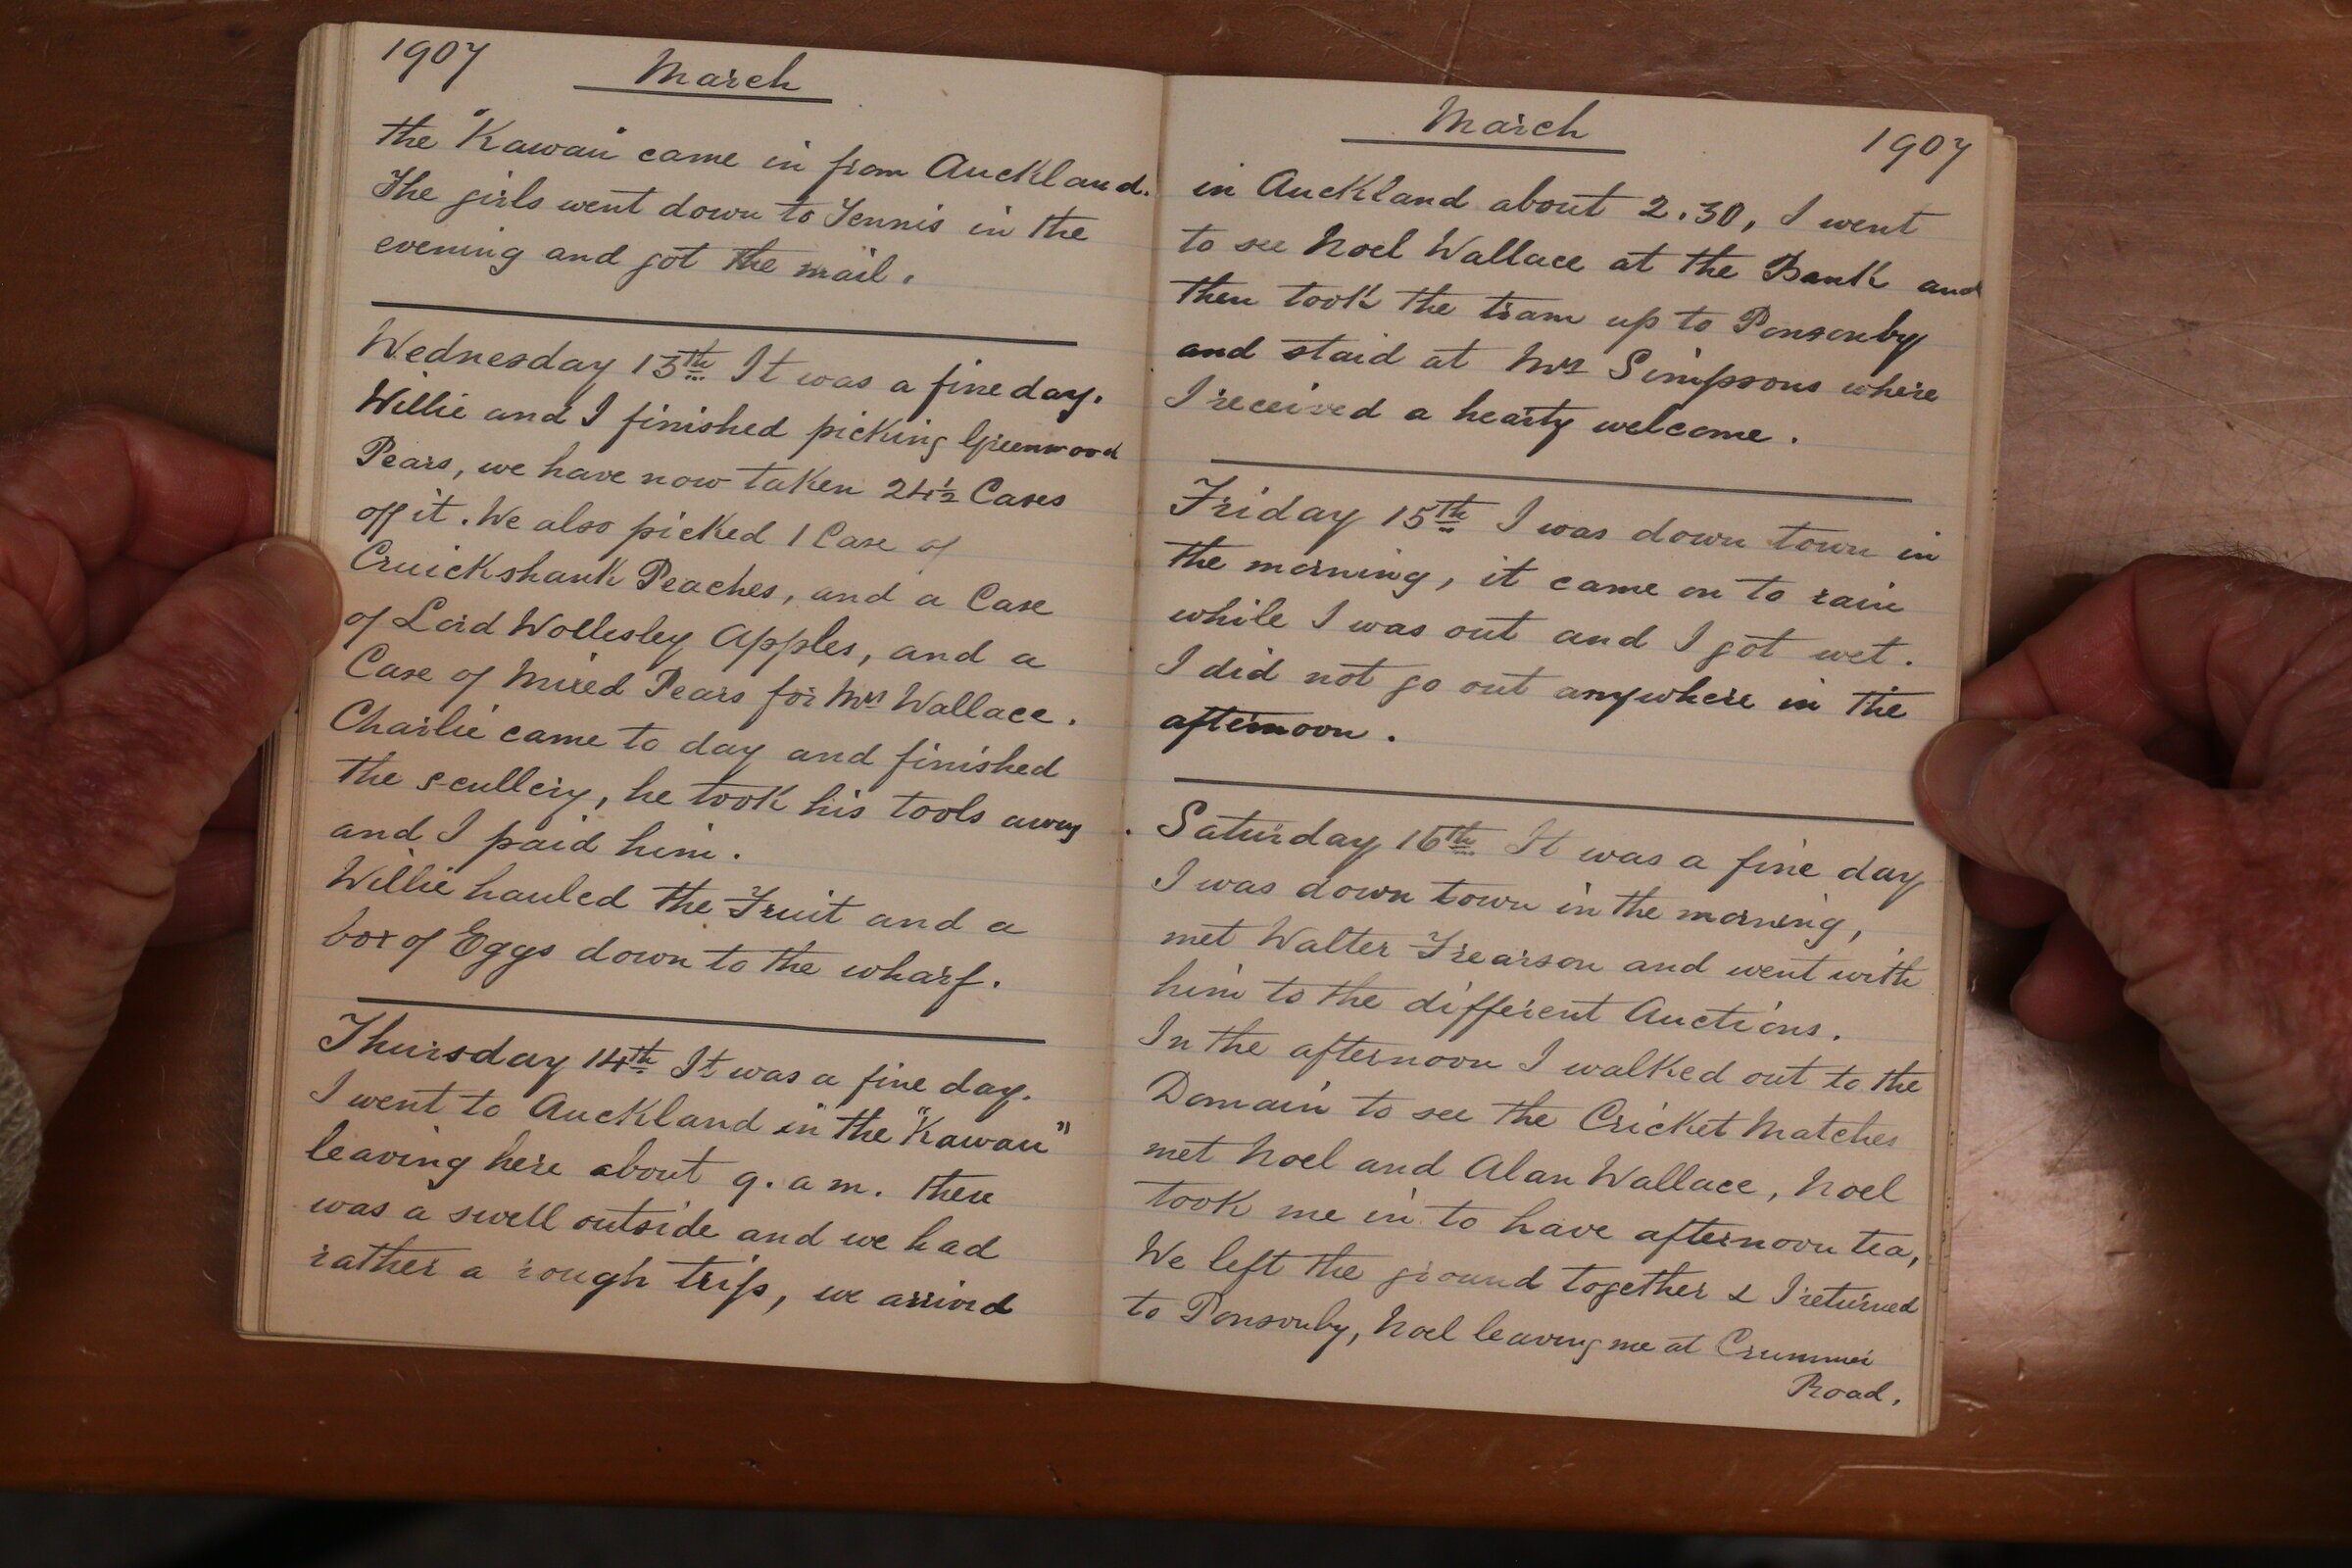 1907
March
the "Kawau" came in from Auckland.
The girls went down to Tennis in the
evening and got the mail.
Wednesday 13th It was a fine day.
Willie and I finished picking Greenwood
Pears, we have now taken 24½ Cases
off it. We also picked 1 Case of
Cruickshank Peaches, and a Case
of Lord Wollesley Apples, and a
Case of Mixed Pears for Mrs Wallace.
Charlie came to day and finished
the scullery, he took his tools away
and I paid him.
Willie hauled the Fruit and a
box of Eggs down to the wharf.
Thursday 14th It was a fine day.
I went to Auckland in the "Kawau"
leaving here about 9. a m. there
was a swell outside and we had
rather a rough trip, we arrived
March
1907
in Auckland about 2.30, I went
to see Noel Wallace at the Bank and
then took the tram up to Ponsonby
and staid at Mrs Simpsons where
I received a hearty welcome.
Friday 15th I was down town in
the morning, it came on to rain
while I was out and I got wet.
I did not go out anywhere in the
afternoon.
Saturday 16th It was a fine day
I was down town in the morning,
met Walter Frearson and went with
him to the different Auctions.
In the afternoon I walked out to the
Domain to see the Cricket Matches
met Noel and Alan Wallace, Noel
took me in to have afternoon tea,
We left the ground together & I returned
to Ponsonby, Noel leaving me at Crummer
Road.